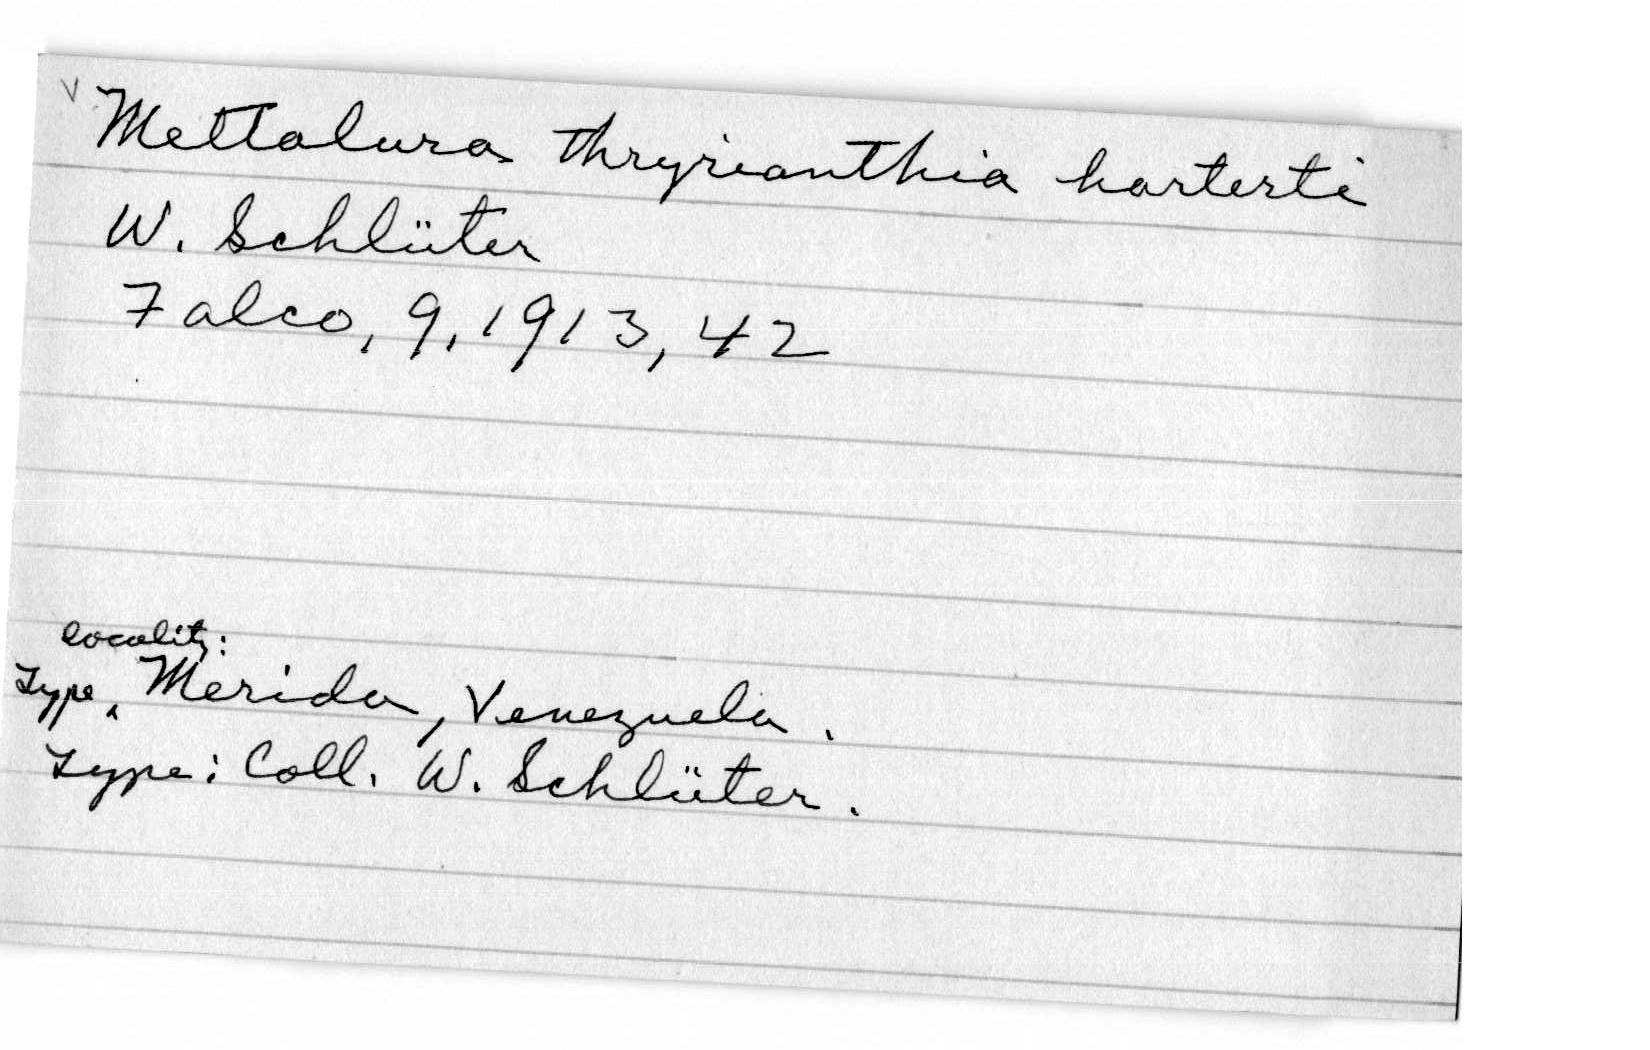 v Mettalura thryrianthia harterti
W. Schlüter
Falco, 9, 1913, 42
locality:
Type ‸ Merida, Venezuela.
Type: Coll. W. Schlüter.